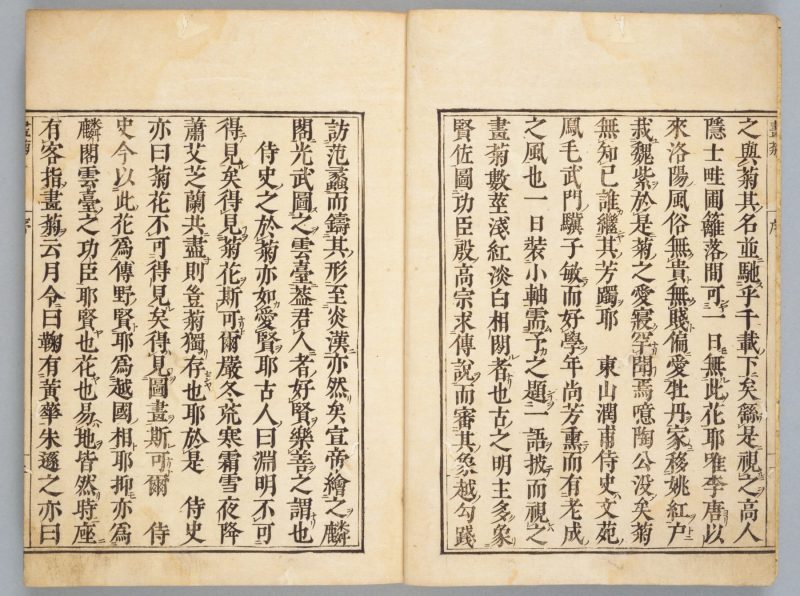 之與菊其名並馳乎千載下矣繇是視之高人
隱士畦圃籬落間可一日無此花耶唯李唐以
來洛陽風俗無貴無賤偏愛牡丹家移姚紅戶
栽魏紫於是菊之愛寢罕聞焉噫陶公没矣菊
無知已誰繼其芳躅耶　東山潤甫侍史文苑
鳳毛武門驥子敏而好學年尚芳熏而有老成
之風也一日裝小軸需予之題一語披而視之
畫菊數莖淺紅淡白相閒者也古之明主多象
賢佐圖功臣殷高宗求傅說而審其象越勾踐
訪范蠡而鑄其形至炎漢亦然矣宣帝繪之麟
閣光武圖之雲臺蓋君人者好賢樂善之謂也
侍史之於菊亦如愛賢耶古人曰淵明不可
得見矣得見菊花斯可爾嚴冬荒寒霜雪夜降
蕭艾芝蘭共盡則豈菊獨存也耶於是　侍史
亦曰菊花不可得見矣得見圖畫斯可爾　侍
史今以此花為傅野賢耶為越國相耶抑亦為
麟閣雲臺之功臣耶賢也花也易地皆然時座
有客指畫菊云月令曰鞠有黃華朱遜之亦曰
畫菊
序